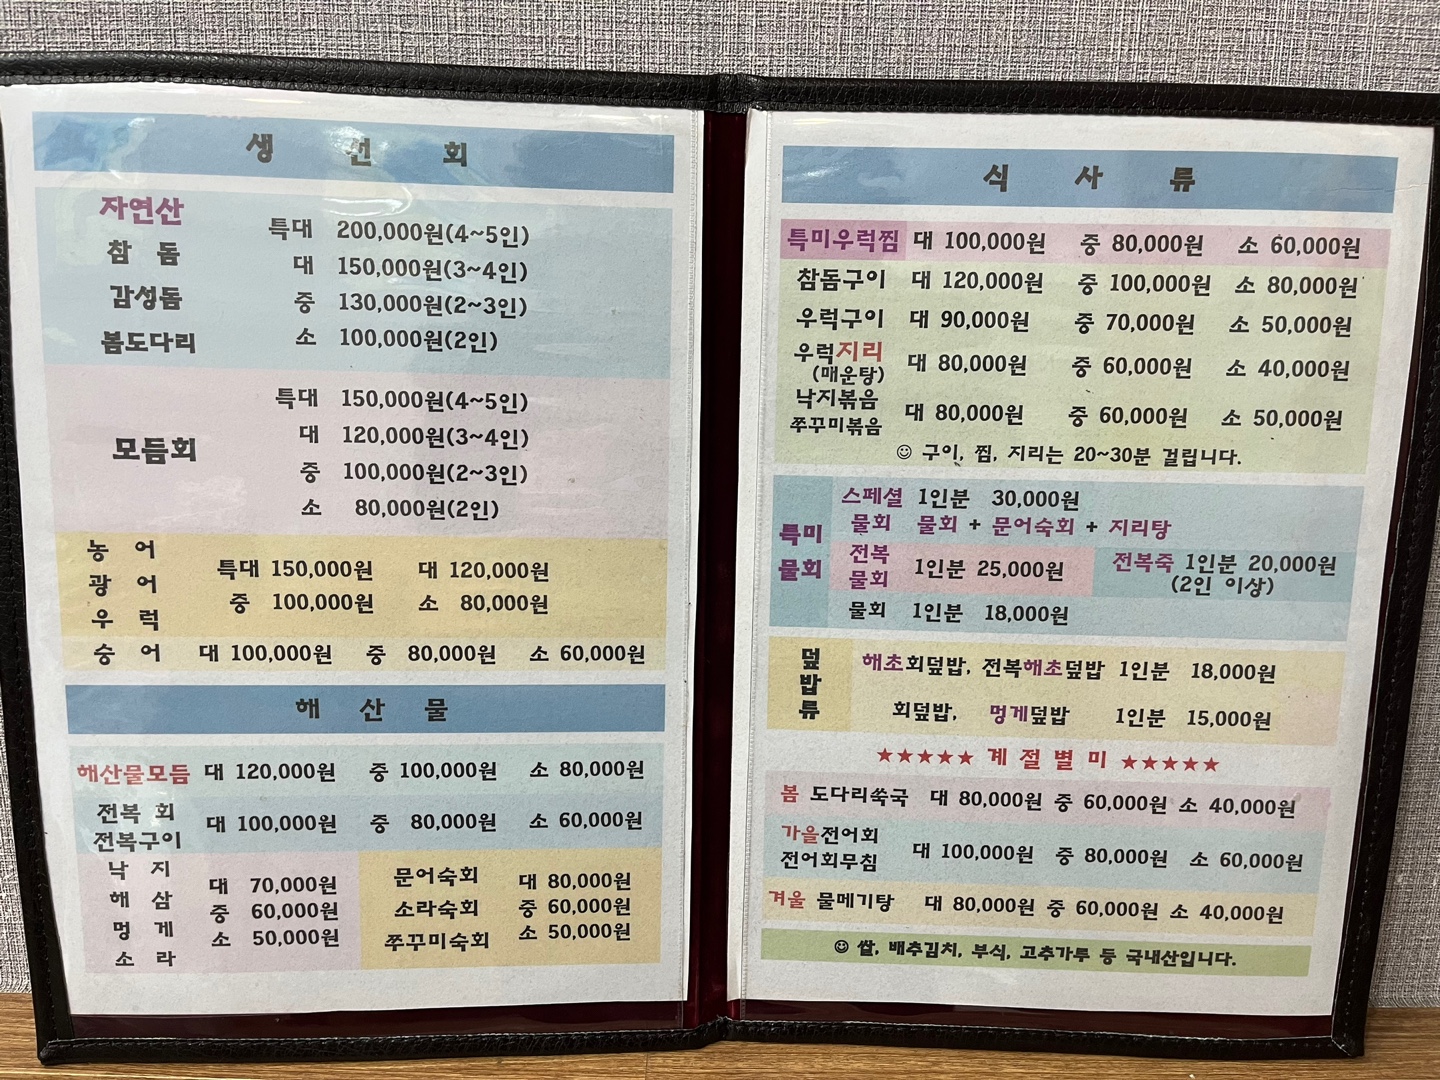 생 선 회
자연산
참 돔
감성돔
봄도다리
특대 200,000원(4~5인)
대 150,000원(3~4인)
중 130,000원(2~3인)
소 100,000원(2인)
모듬회
특대 150,000원(4~5인)
대 120,000원(3~4인)
중 100,000원(2~3인)
소 80,000원(2인)
농 어
광 어
우 럭
특대 150,000원 대 120,000원
중 100,000원 소 80,000원
숭 어 대 100,000원 중 80,000원 소 60,000원
해 산 물
해산물모듬 대 120,000원 중 100,000원 소 80,000원
전복 회
전복구이
대 100,000원 중 80,000원 소 60,000원
낙 지
해 삼
멍 게
소 라
대 70,000원
중 60,000원
소 50,000원
문어숙회
소라숙회
쭈꾸미숙회
대 80,000원
중 60,000원
소 50,000원
식 사 류
특미우럭찜 대 100,000원 중 80,000원 소 60,000원
참돔구이 대 120,000원 중 100,000원 소 80,000원
우럭구이 대 90,000원 중 70,000원 소 50,000원
우럭지리
(매운탕)
대 80,000원 중 60,000원 소 40,000원
낙지볶음
쭈꾸미볶음
대 80,000원 중 60,000원 소 50,000원
☺ 구이, 찜, 지리는 20~30분 걸립니다.
특미
물회
스페셜 1인분 30,000원
물회 물회 + 문어숙회 + 지리탕
전복
물회
1인분 25,000원
전복죽 1인분 20,000원
(2인 이상)
물회 1인분 18,000원
덮
밥
류
해초회덮밥, 전복해초덮밥 1인분 18,000원
회덮밥, 멍게덮밥 1인분 15,000원
★★★★★ 계 절 별 미 ★★★★★
봄 도다리쑥국 대 80,000원 중 60,000원 소 40,000원
가을전어회
전어회무침
대 100,000원 중 80,000원 소 60,000원
겨울 물메기탕 대 80,000원 중 60,000원 소 40,000원
☺ 쌀, 배추김치, 부식, 고추가루 등 국내산입니다.